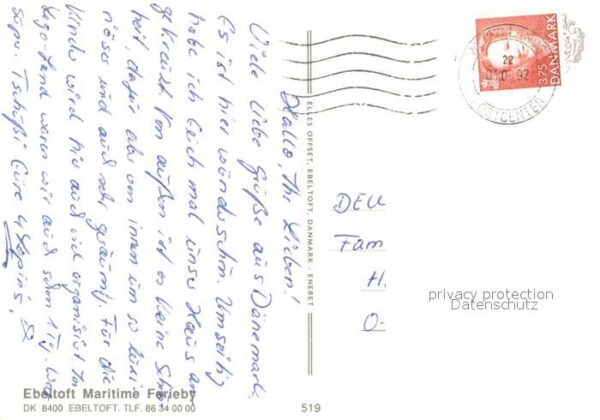 Hallo, Ihr Lieben!
Viele liebe Grüße aus Dänemark.
Es ist hier wunderschön. Umseitig
habe ich Euch mal unser Haus an-
gekreuzt. Von außen ist es keine Schön-
heit, dafür aber von innen um so luxu-
riöser und auch sehr geräumig. Für die
Kinder wird hier auch viel organisiert. Im
Lego-Land waren wir auch schon 1 Tag. War
super. Tschüßi Eure 4
ELLES OFFSET, EBELTOFT, DANMARK - ENERET
Ebeltoft Maritime Ferieby
DK 8400 EBELTOFT. TLF. 86 34 00 00
519
3.75
DANMARK
22
92
POSTCENTER
DEU
Fam
H
O-
privacy protection
Datenschutz